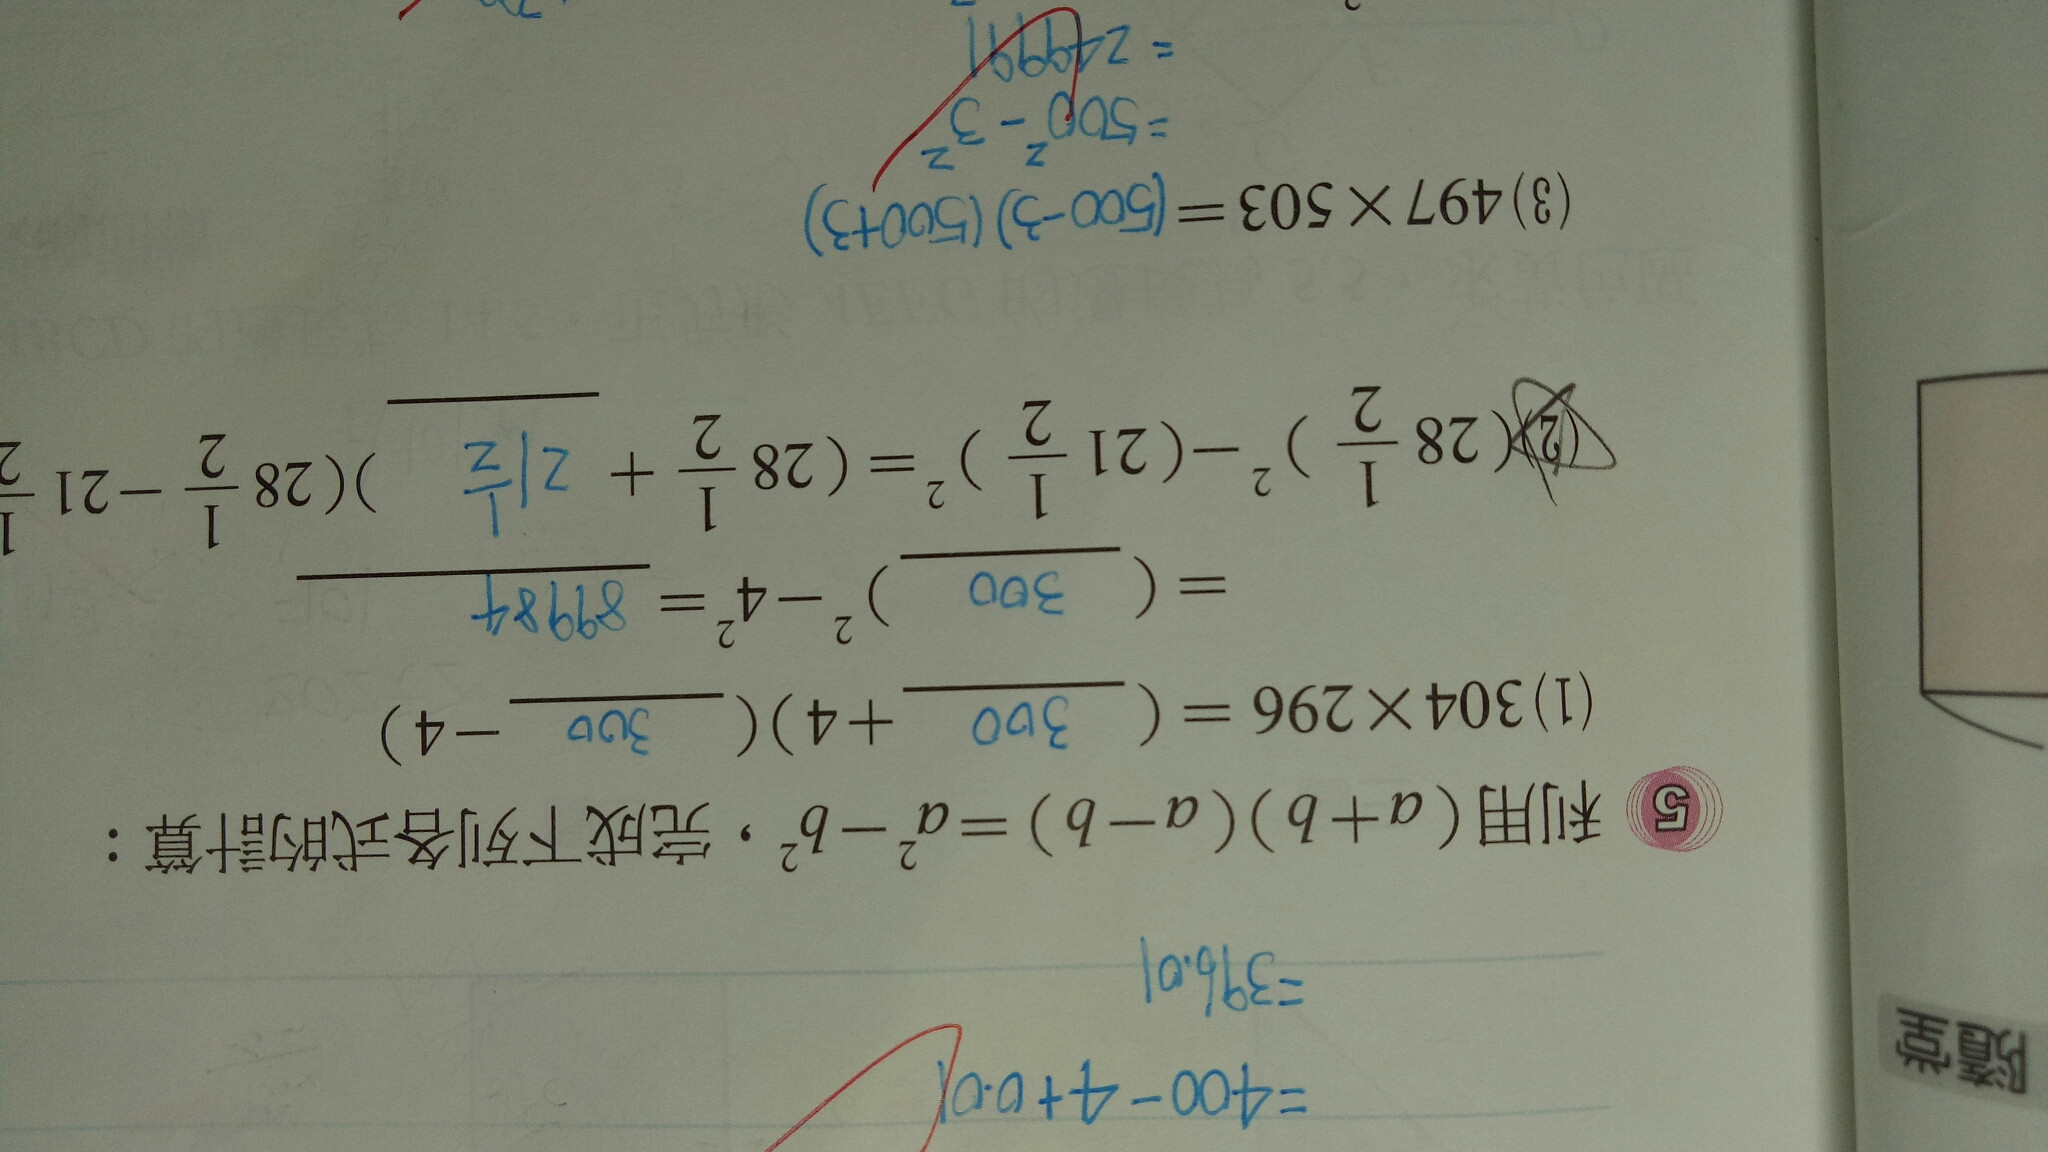 =400-4+0.01
=396.01
隨堂
5 利用(a+b)(a-b)=a²-b²,完成下列各式的計算:
(1)304×296=(300+4)(300-4)
=(300)²-4²=89984
(2)(28 1/2)²-(21 1/2)²=(28 1/2+21 1/2)(28 1/2-21 1/2
(3)497×503=(500-3)(500+3)
=500²-3²
=249991